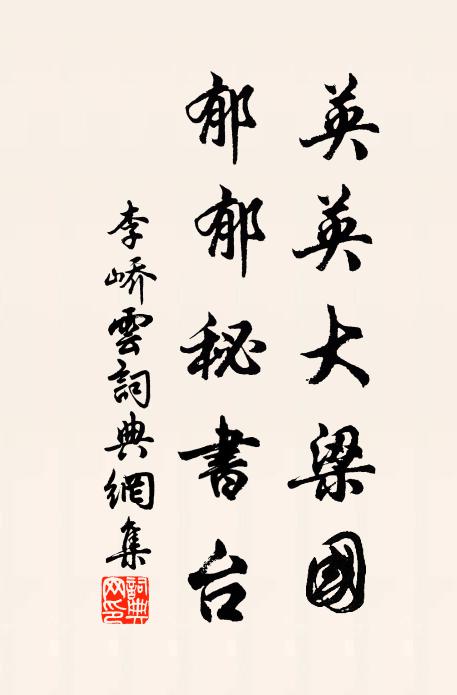 英英大梁國
郁郁秘書台
李峤雲詞典網集
詞典网印